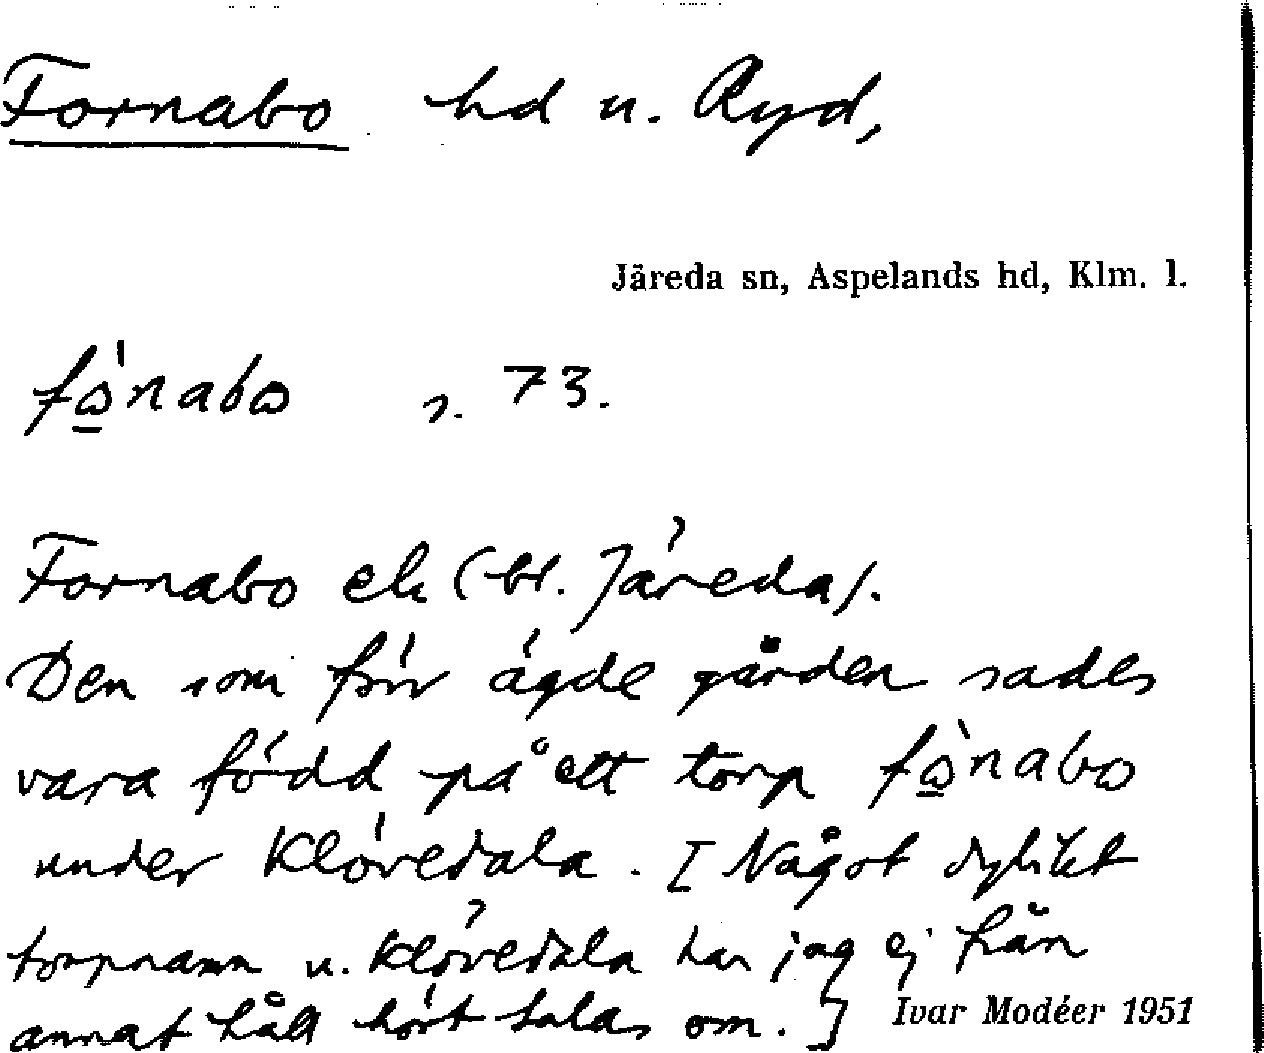 Fornabo hd u. Ryd,
Järeda sn, Aspelands hd, Klm. l.
fǫ̀nabo s. 73.
Fornabo ek (bl. Järeda).
Den som förr ägde gården sades
vara född på ett torp fǫ̀nabo
under Klövedala. [Något dylikt
torpnamn u. Klövedala har jag ej från
annat håll hört talas om.]
Ivar Modéer 1951